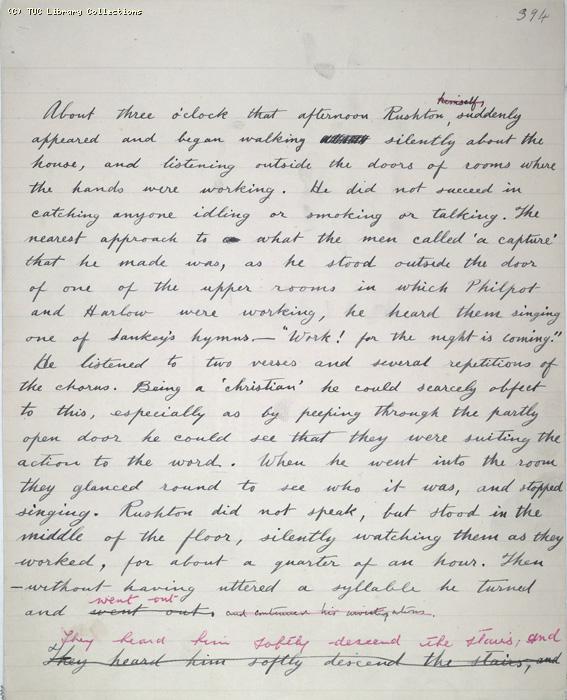 (C) TUC Library Collections
394
himself,
About three o'clock that afternoon Rushton, suddenly
appeared and began walking silently about the
house, and listening outside the doors of rooms where
the hands were working. He did not succeed in
catching anyone idling or smoking or talking. The
nearest approach to what the men called 'a capture'
that he made was, as he stood outside the door
of one of the upper rooms in which Philpot
and Harlow were working, he heard them singing
one of Sankey's hymns — "Work! for the night is coming."
He listened to two verses and several repetitions of
the chorus. Being a 'christian' he could scarcely object
to this, especially as by peeping through the partly
open door he could see that they were suiting the
action to the word. When he went into the room
they glanced round to see who it was, and stopped
singing. Rushton did not speak, but stood in the
middle of the floor, silently watching them as they
worked, for about a quarter of an hour. Then
—without having uttered a syllable he turned
went out
and went out, and continued his investigations.
They heard him softly descend the stairs; and
They heard him softly descend the stairs, and